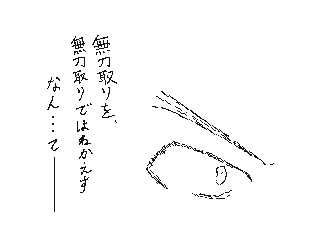 無刀取りを、
無刀取りではねかえす
なん…て——